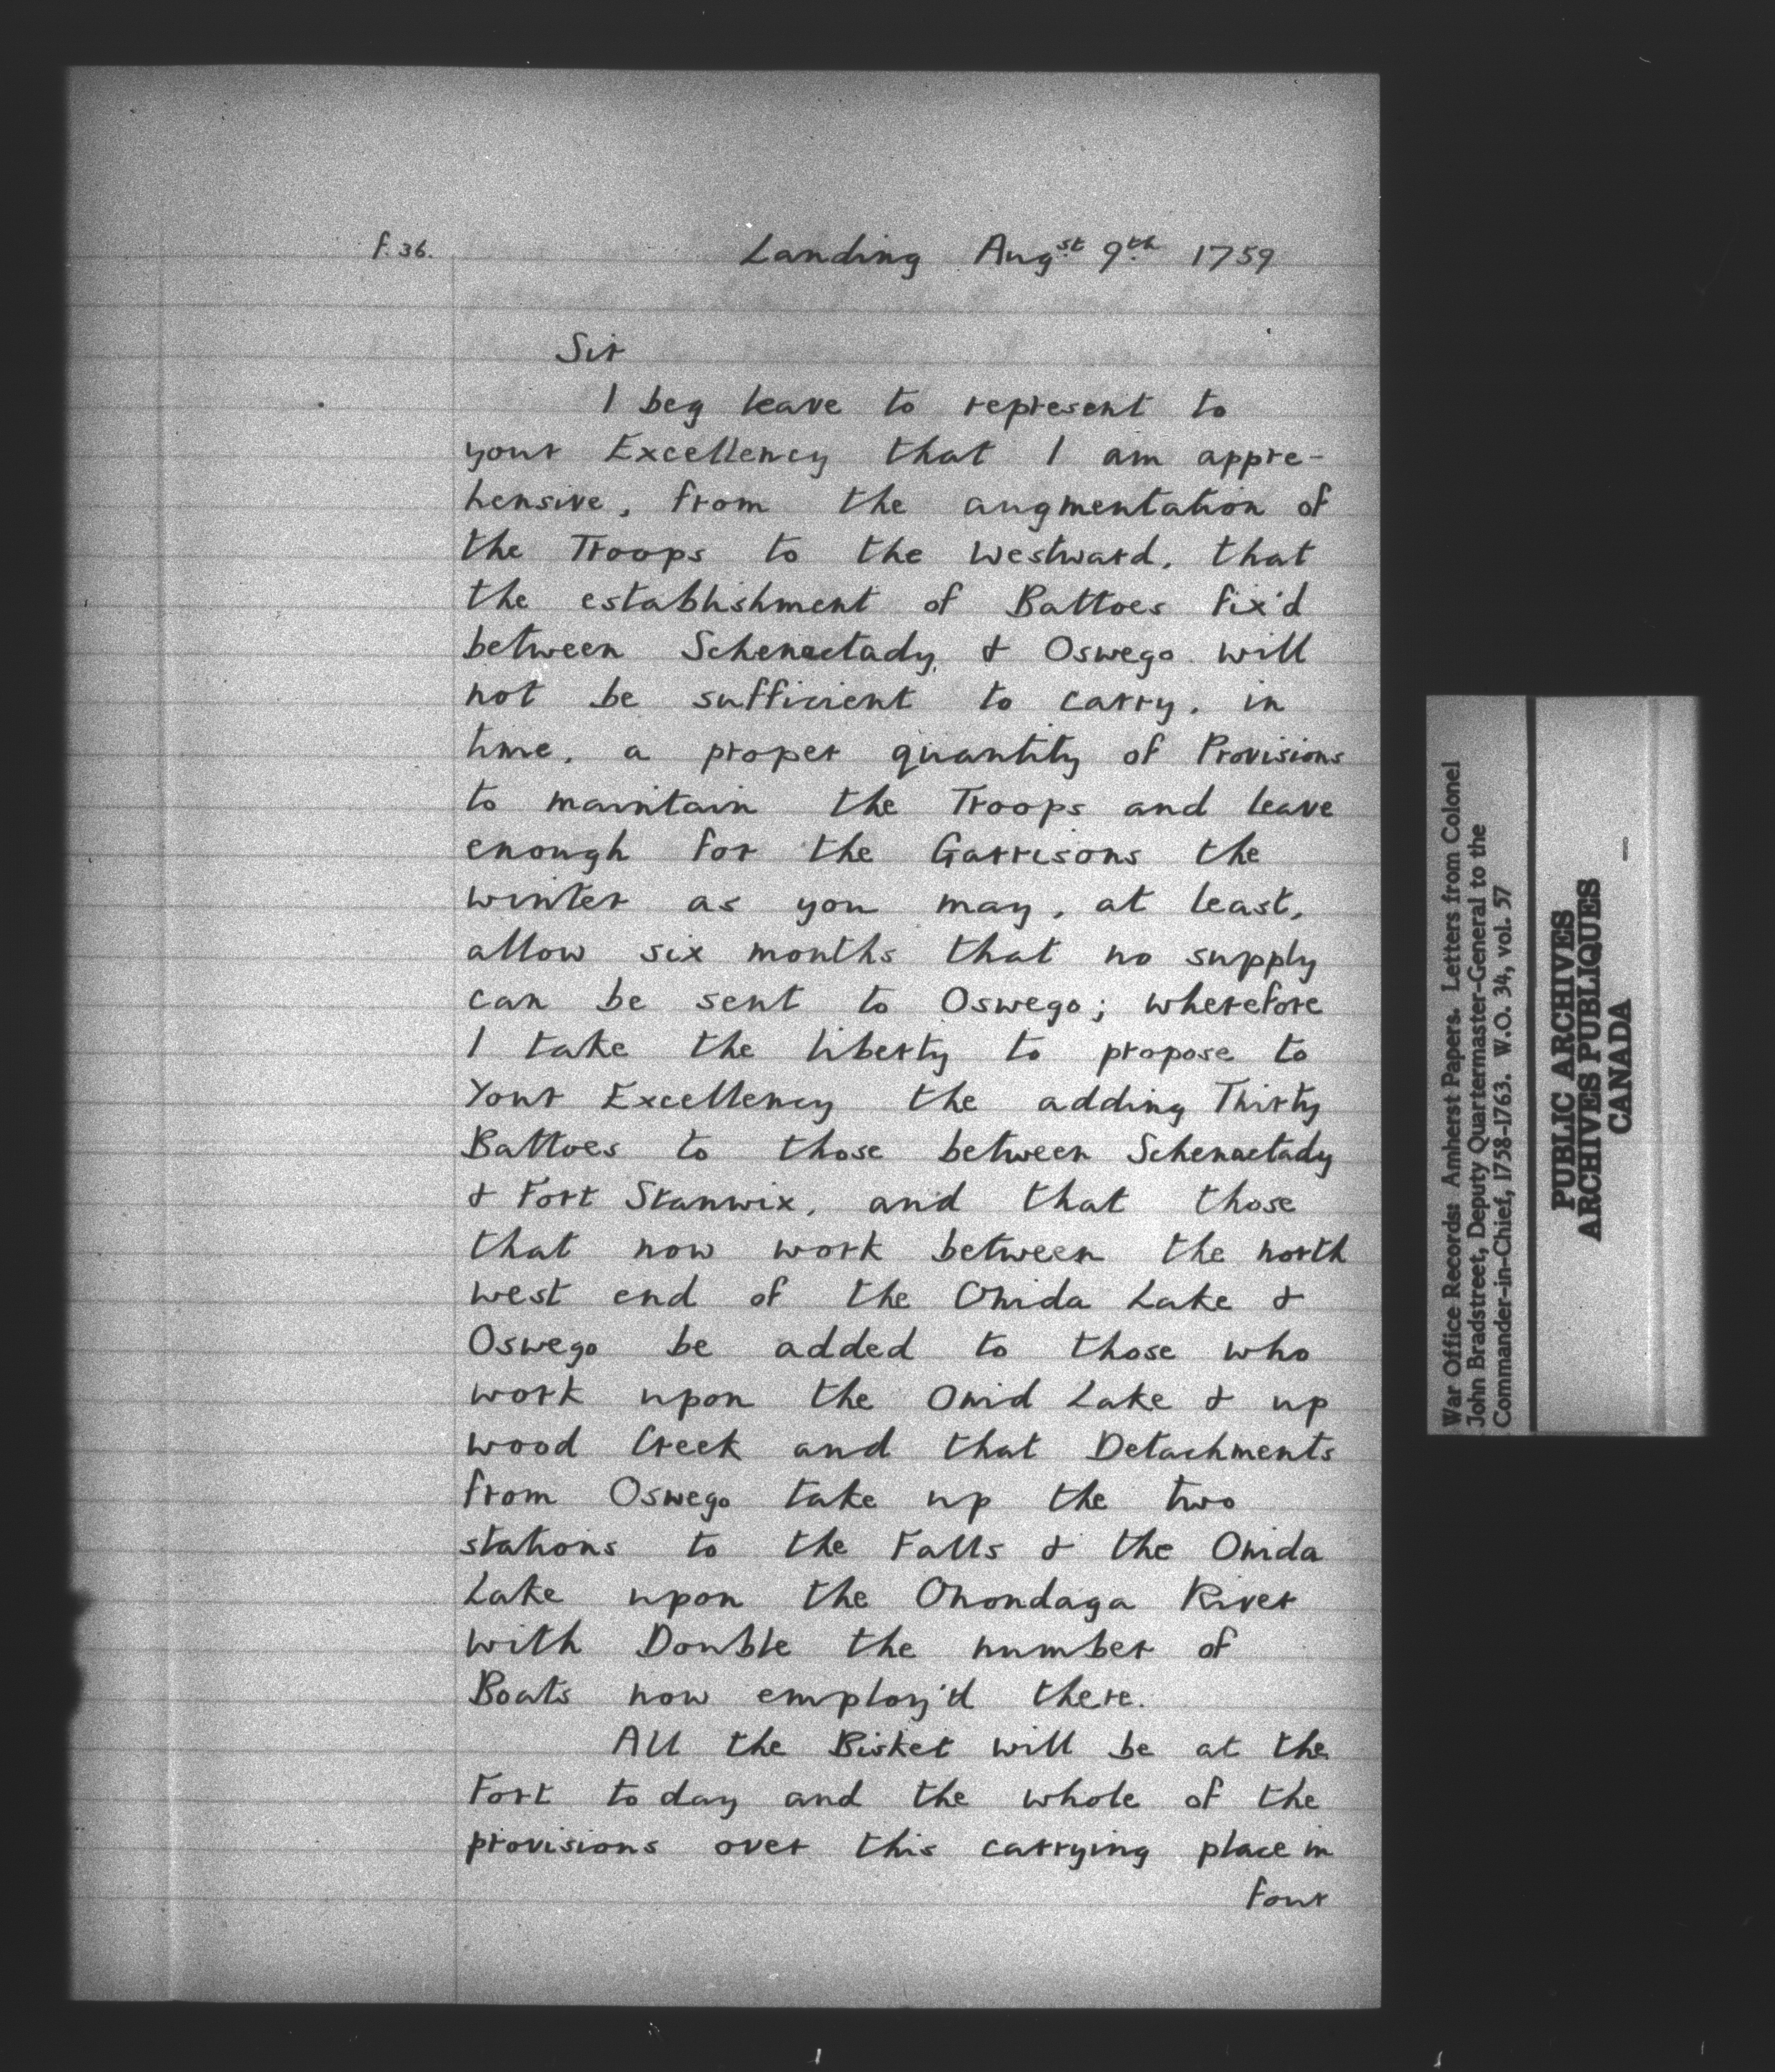 f. 36.
Landing Augst 9th 1759
Sir
I beg leave to represent to
your Excellency that I am appre-
hensive, from the augmentation of
the Troops to the Westward, that
the establishment of Battoes fix'd
between Schenectady, & Oswego will
not be sufficient to carry, in
time, a proper quantity of Provisions
to maintain the Troops and leave
enough for the Garrisons the
winter as you may, at least,
allow six months that no supply
can be sent to Oswego; wherefore
I take the liberty to propose to
Your Excellency the adding Thirty
Battoes to those between Schenectady
& Fort Stanwix, and that those
that now work between the north
west end of the Onida Lake &
Oswego be added to those who
work upon the Onid Lake & up
wood Creek and that Detachments
from Oswego take up the two
stations to the Falls & the Onida
Lake upon the Onondaga River
with Double the number of
Boats now employ'd there.
All the Bisket will be at the
Fort to day and the whole of the
provisions over this carrying place in
four
War Office Records: Amherst Papers. Letters from Colonel
John Bradstreet, Deputy Quartermaster-General to the
Commander-in-Chief, 1758-1763. W.O. 34, vol. 57
PUBLIC ARCHIVES
ARCHIVES PUBLIQUES
CANADA